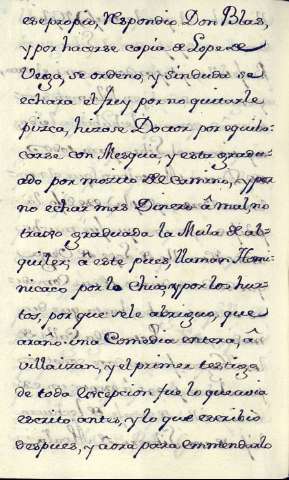 ese propio, Respondio Don Blas,
y por hacerse copia de Lope de
Vega, se ordenò, y sinduda se
echara el frey por no quitarle
pizca, hizose Doctor por equibo-
carse con Mesqua, y esta gradu-
ado por mosito de Camino, y por
no echar mas Dinero â mal, no
traxo graduada la Mula de al-
quiler, â este pues, llaman Homi-
nicaco por lo chico, y por los hur-
tos, porque se le abriguo, que
arañò una Comedia entera, â
villaizan, y el primer testigo
de toda excepcion fue lo que avia
escrito antes, y lo que escribio
despues, y aora para enmendarlo